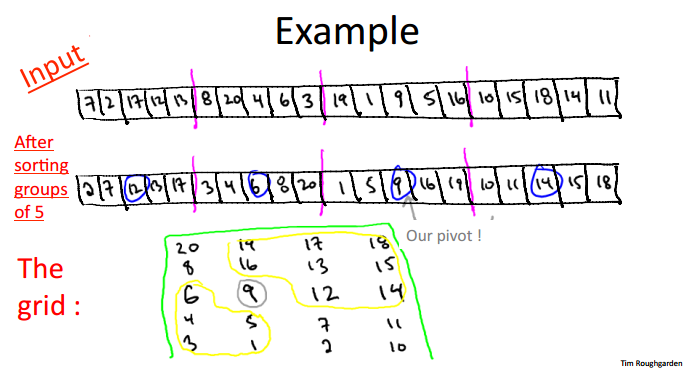 Example
Input
7 2 17 12 13 8 20 4 6 3 19 1 9 5 16 10 15 18 14 11
After
sorting
groups
of 5
2 7 12 13 17 3 4 6 8 20 1 5 9 16 19 10 11 14 15 18
Our pivot !
The
grid :
20 19 17 18
8 16 13 15
6 9 12 14
4 5 7 11
3 1 2 10
Tim Roughgarden